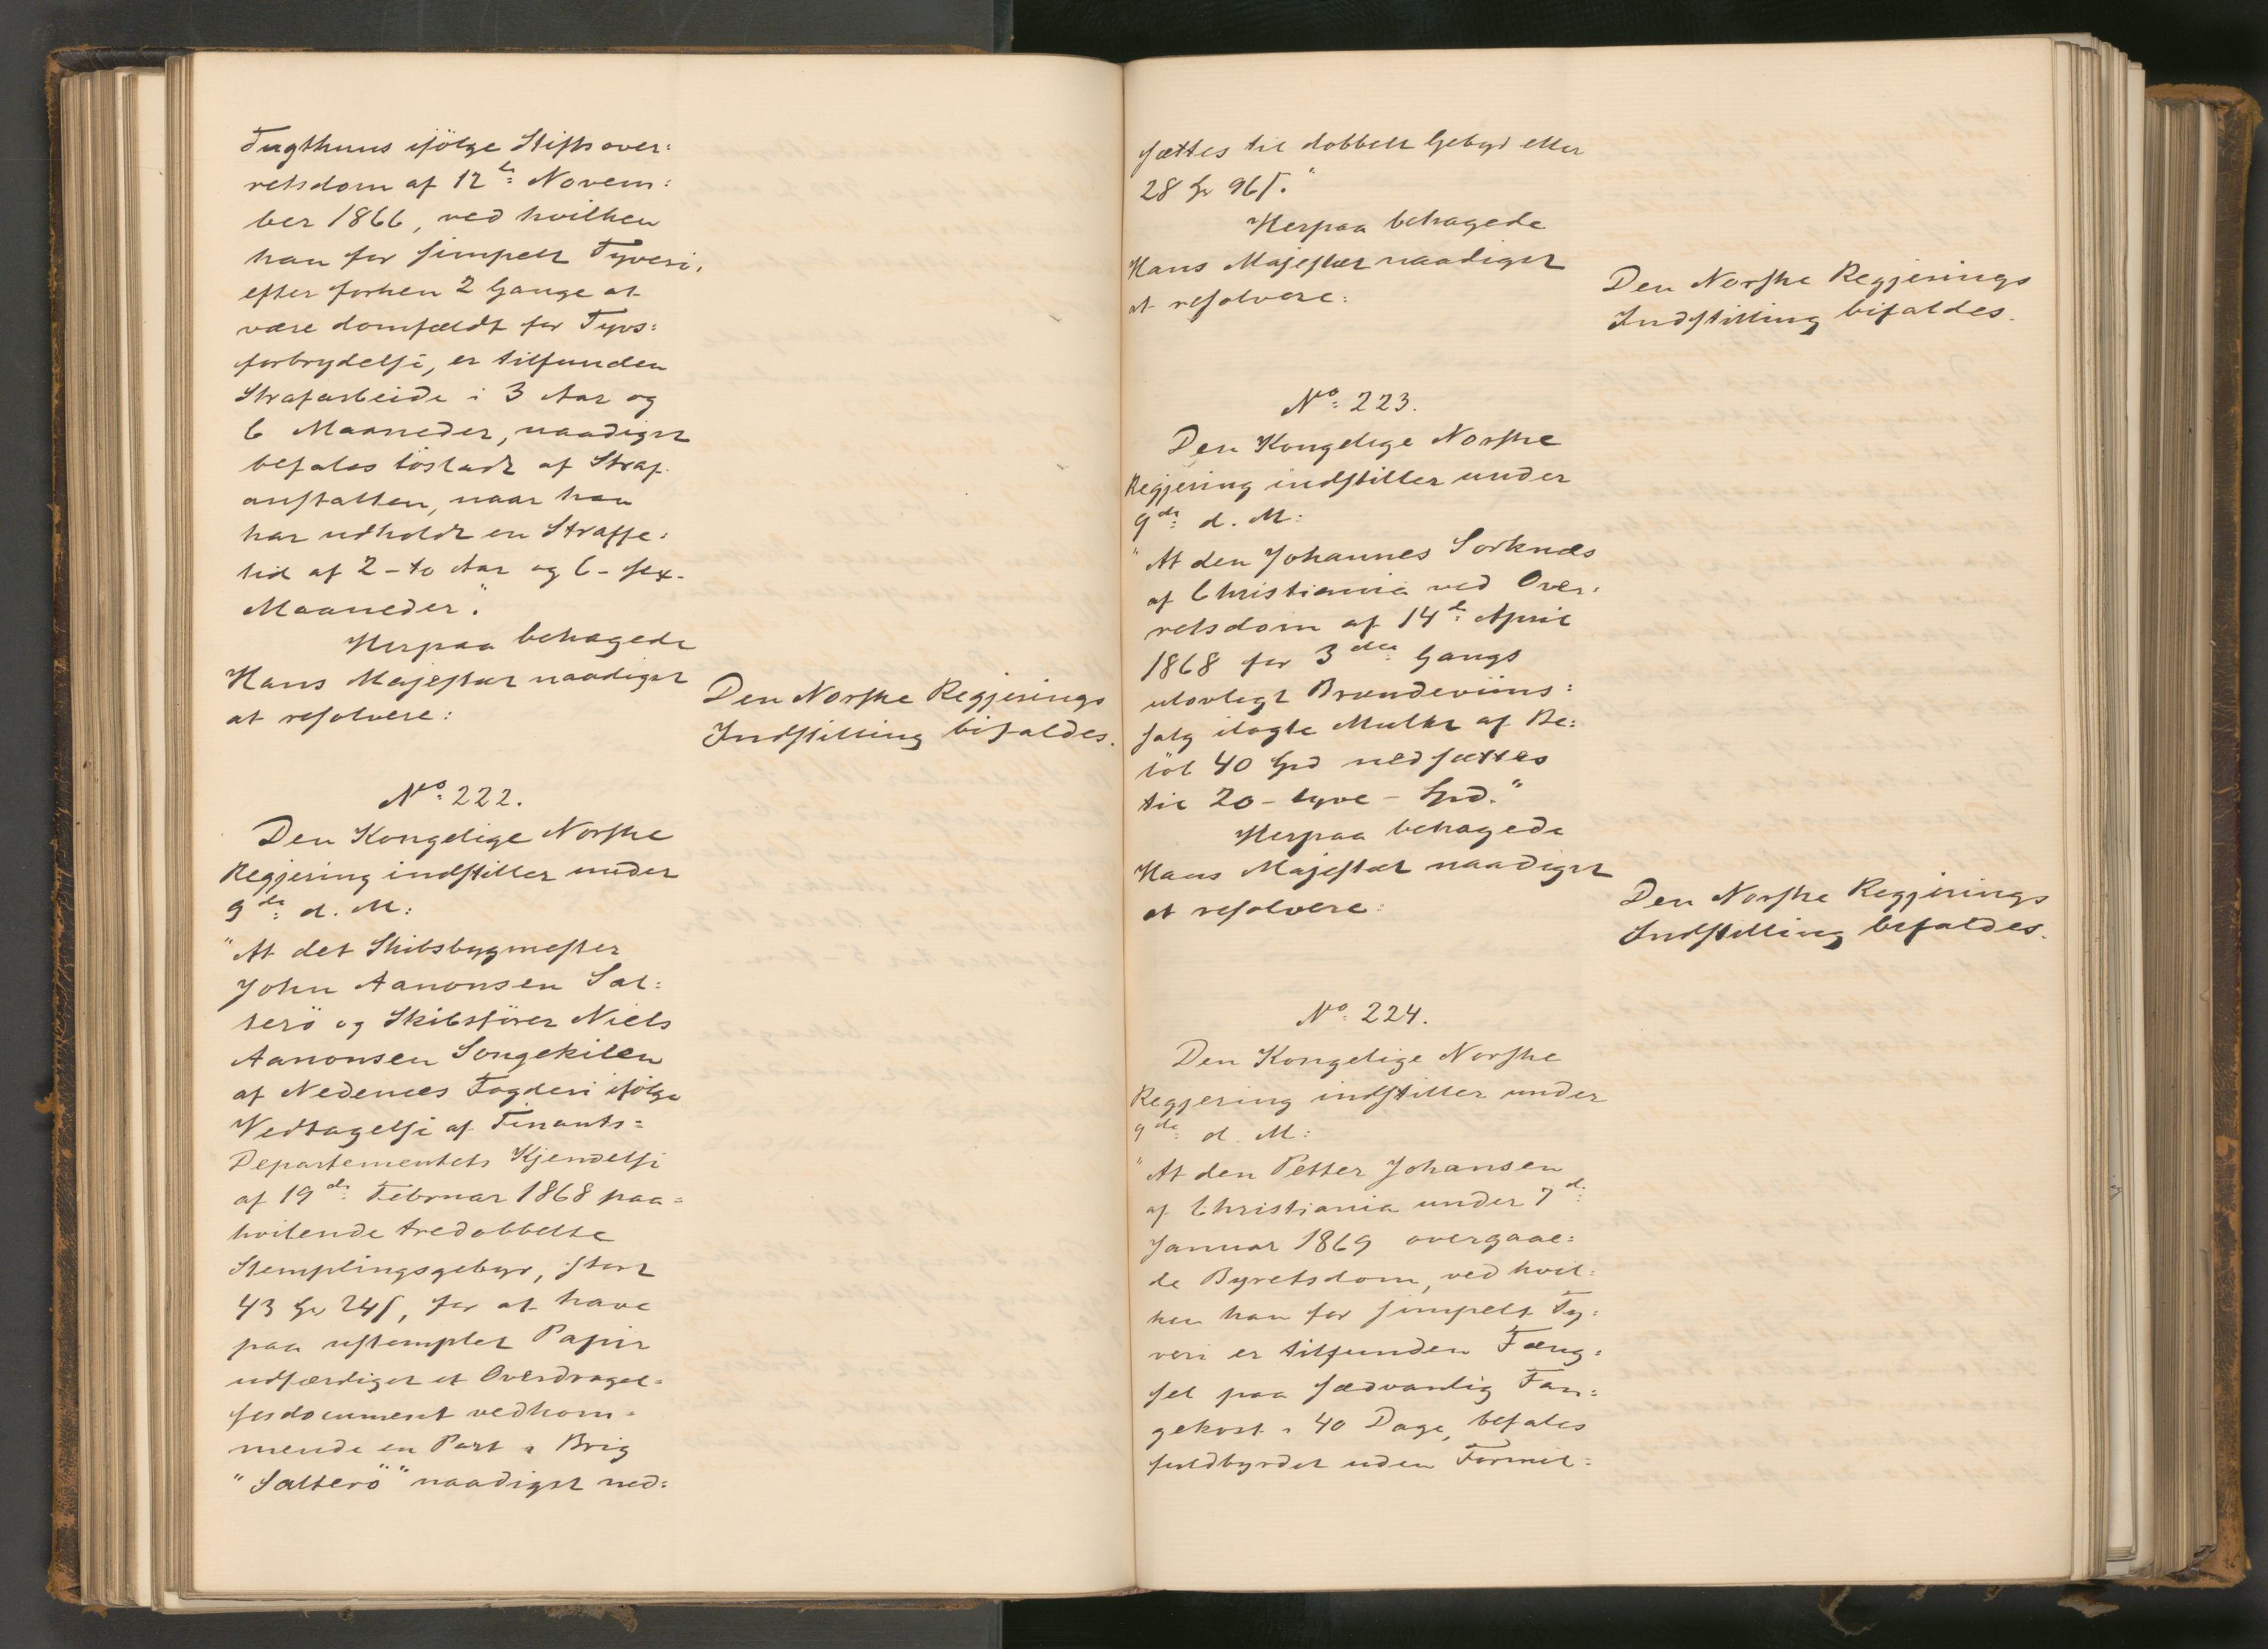 Tugthuus ifölge Stiftsover:
retsdom af 12te Novem:
ber 1866, ved hvilken
han for simpelt Tyveri,
efter forhen 2 Gange at
være domfældt for Tyvs:
forbrydelse, er tilfunden
Strafarbeide i 3 Aar og
6 Maaneder, naadigst
befales løsladt af Straf-
anstalten, naar han
har udholdt en Straffe:
tid af 2 - to Aar og 6 - sex -
Maaneder."
Herpaa behagede
Hans Majestæt naadigst
at resolvere:
Den Norske Regjerings
Indstilling bifaldes.
No: 222.
Den Kongelige Norske
Regjering indstiller under
9de: d. M:
"At det Skibsbygmester
John Aanonsen Sal:
terö og Skibsfører Niels
Aanonsen Songekilen
af Nedenæs Fogderi ifölge
Vedtagelse af Finants=
Departementets Kjendelse
af 19de: Februar 1868 paa=
hvilende tredobbelte
Stemplingsgebyr, stort
43 Spd 24 s, for at have
paa ustemplet Papir
udfærdiget et Overdragel=
sesdocument vedkom=
mende en Part i Brig
"Salterö" naadigst ned=
sættes til dobbelt Gebyr eller
28 Spd 96 s."
Herpaa behagede
Hans Majestæt naadigst
at resolvere:
Den Norske Regjerings
Indstilling bifaldes.
No: 223.
Den Kongelige Norske
Regjering indstiller under
9de: d. M:
"At den Johannes Sorknæs
af Christiania ved Over:
retsdom af 14de: April
1868 for 3die: Gangs
ulovligt Brændeviins:
salg ilagte Mulkt af Be:
löb 40 Spd nedsættes
til 20 - tyve - Spd."
Herpaa behagede
Hans Majestæt naadigst
at resolvere:
Den Norske Regjerings
Indstilling bifaldes.
No: 224.
Den Kongelige Norske
Regjering indstiller under
9de: d. M:
"At den Petter Johansen
af Christiania under 7de:
Januar 1869 overgaae:
de Byretsdom, ved hvil:
ken han for simpelt Ty:
veri er tilfunden Fæng:
sel paa sædvanlig Fan:
gekost i 40 Dage, befales
fuldbyrdet uden Formil=